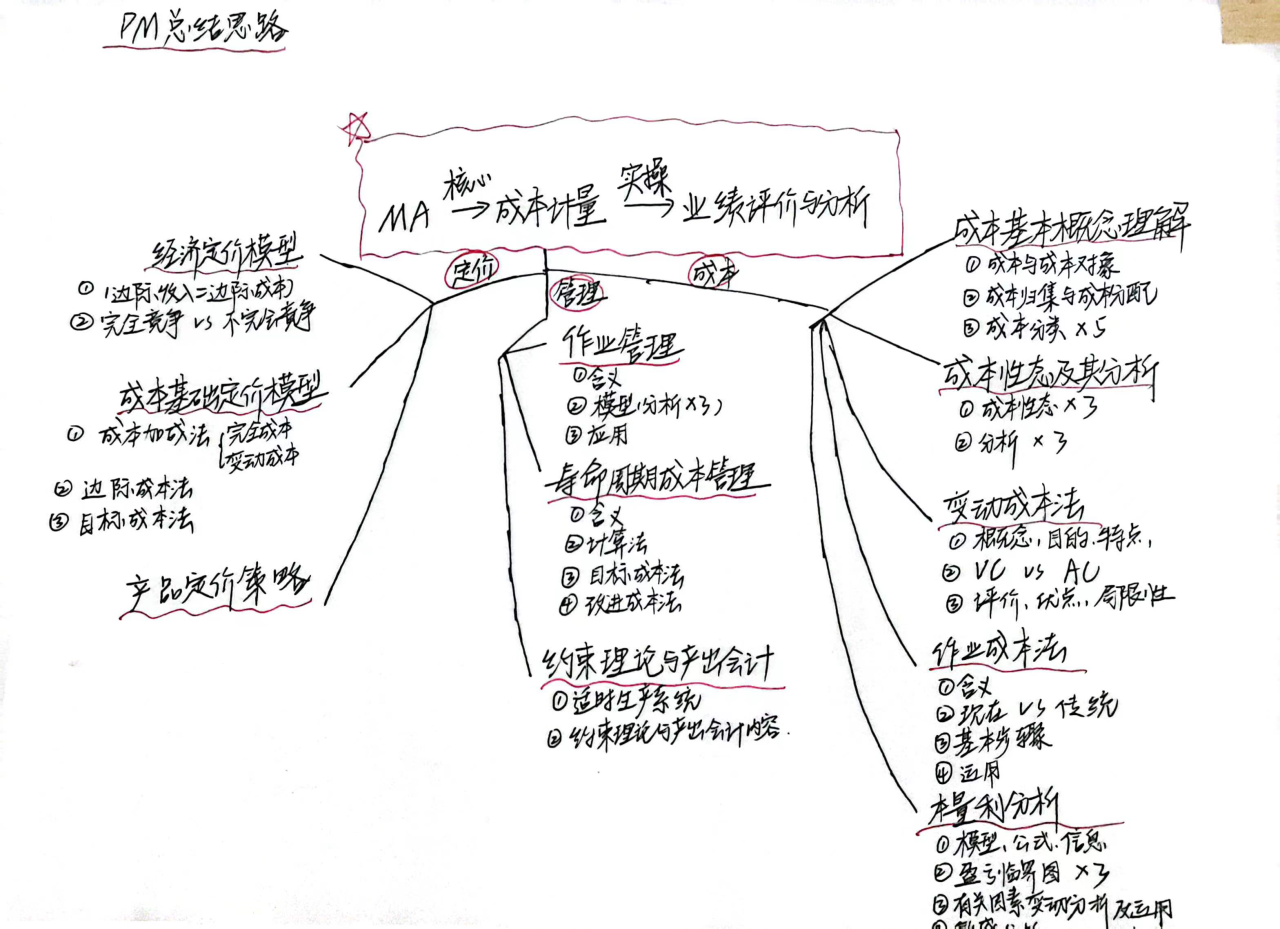 PM总结思路
核心 实操
MA → 成本计量 → 业绩评价与分析
定价
管理
成本
经济定价模型
① (边际收入=边际成本)
② 完全竞争 vs 不完全竞争
成本基础定价模型
① 成本加成法 { 完全成本
变动成本
② 边际成本法
③ 目标成本法
产品定价策略
作业管理
①含义
② 模型(分析×3)
③ 应用
寿命周期成本管理
①含义
②计算法
③ 目标成本法
④ 改进成本法
约束理论与产出会计
① 适时生产系统
② 约束理论与产出会计内容.
成本基本概念理解
① 成本与成本对象
② 成本归集与成本分配
③ 成本分类 ×5
成本性态及其分析
① 成本性态×3
② 分析 ×3
变动成本法
① 概念,目的,特点,
② VC vs AC
③ 评价,优点,局限性
作业成本法
①含义
② 现在 vs 传统
③基本步骤
④ 运用
本量利分析
① 模型、公式、信息
② 盈亏临界图 ×3
③有关因素变动分析及运用